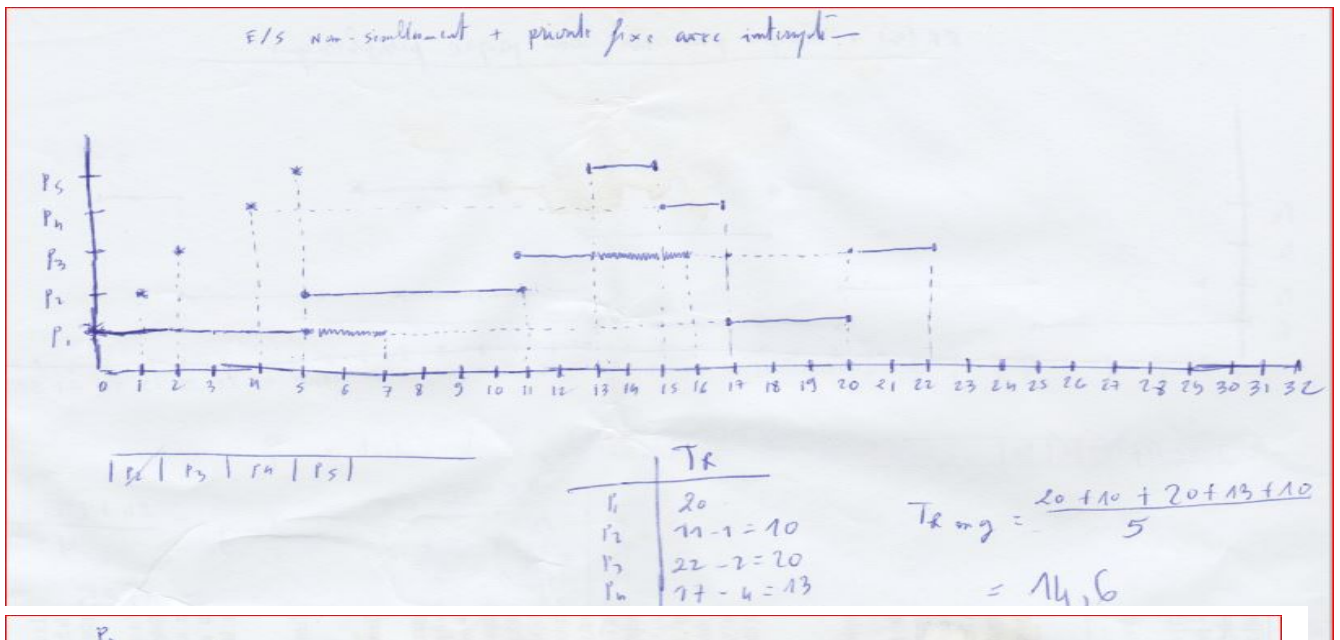 E/S non-simultanément + priorité fixe avec
P5
P4
P3
P2
P1
0 1 2 3 4 5 6 7 8 9 10 11 12 13 14 15 16 17 18 19 20 21 22 23 24 25 26 27 28 29 30 31 32
| P2 | P3 | P4 | P5 |
TR
P1 20
P2 11-1=10
P3 22-2=20
P4 17-4=13
TR mg = 20+10+20+13+10
5
= 14,6